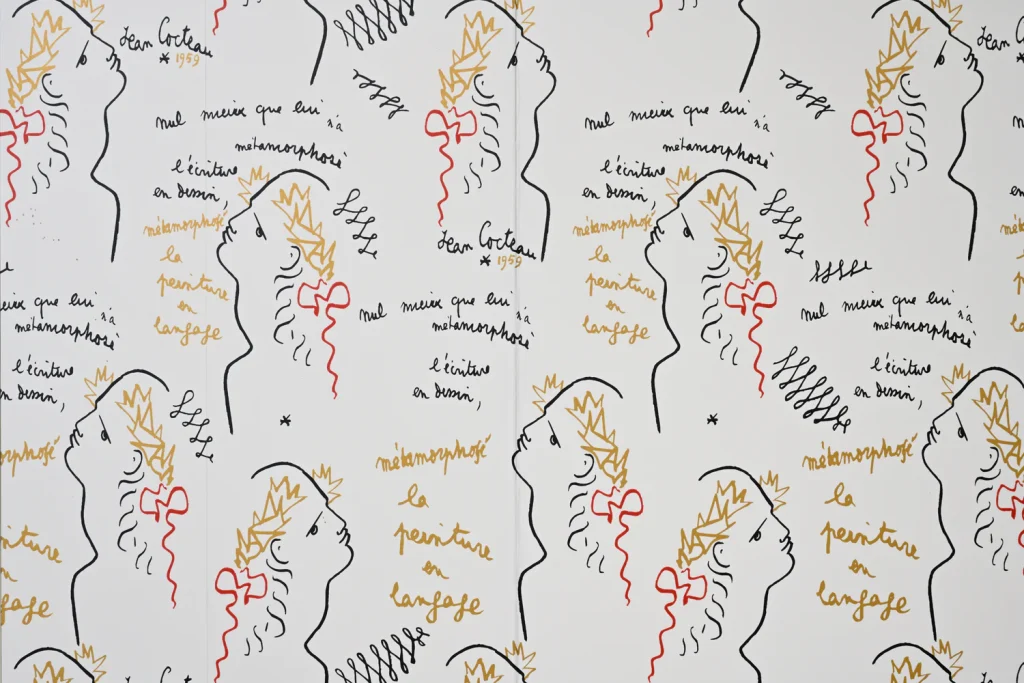 Jean Cocteau
* 1959
Jean Co
nul mieux que lui
n'a
métamorphosé
l'écriture
en dessin,
métamorphosé
la
peinture
en
langage
nul mieux que lui
n'a
métamorphosé
l'écriture
en dessin,
métamorphosé
la
peinture
en
langage
Jean Cocteau
* 1959
mieux que lui
n'a
métamorphosé
l'écriture
en dessin,
nul mieux que lui
n'a
métamorphosé
l'écriture
en dessin,
nul mieux que lui
n'a
métamorphosé
l'écriture
en dessin,
*
*
métamorphosé
la
peinture
en
langage
métamorphosé
la
peinture
en
langage